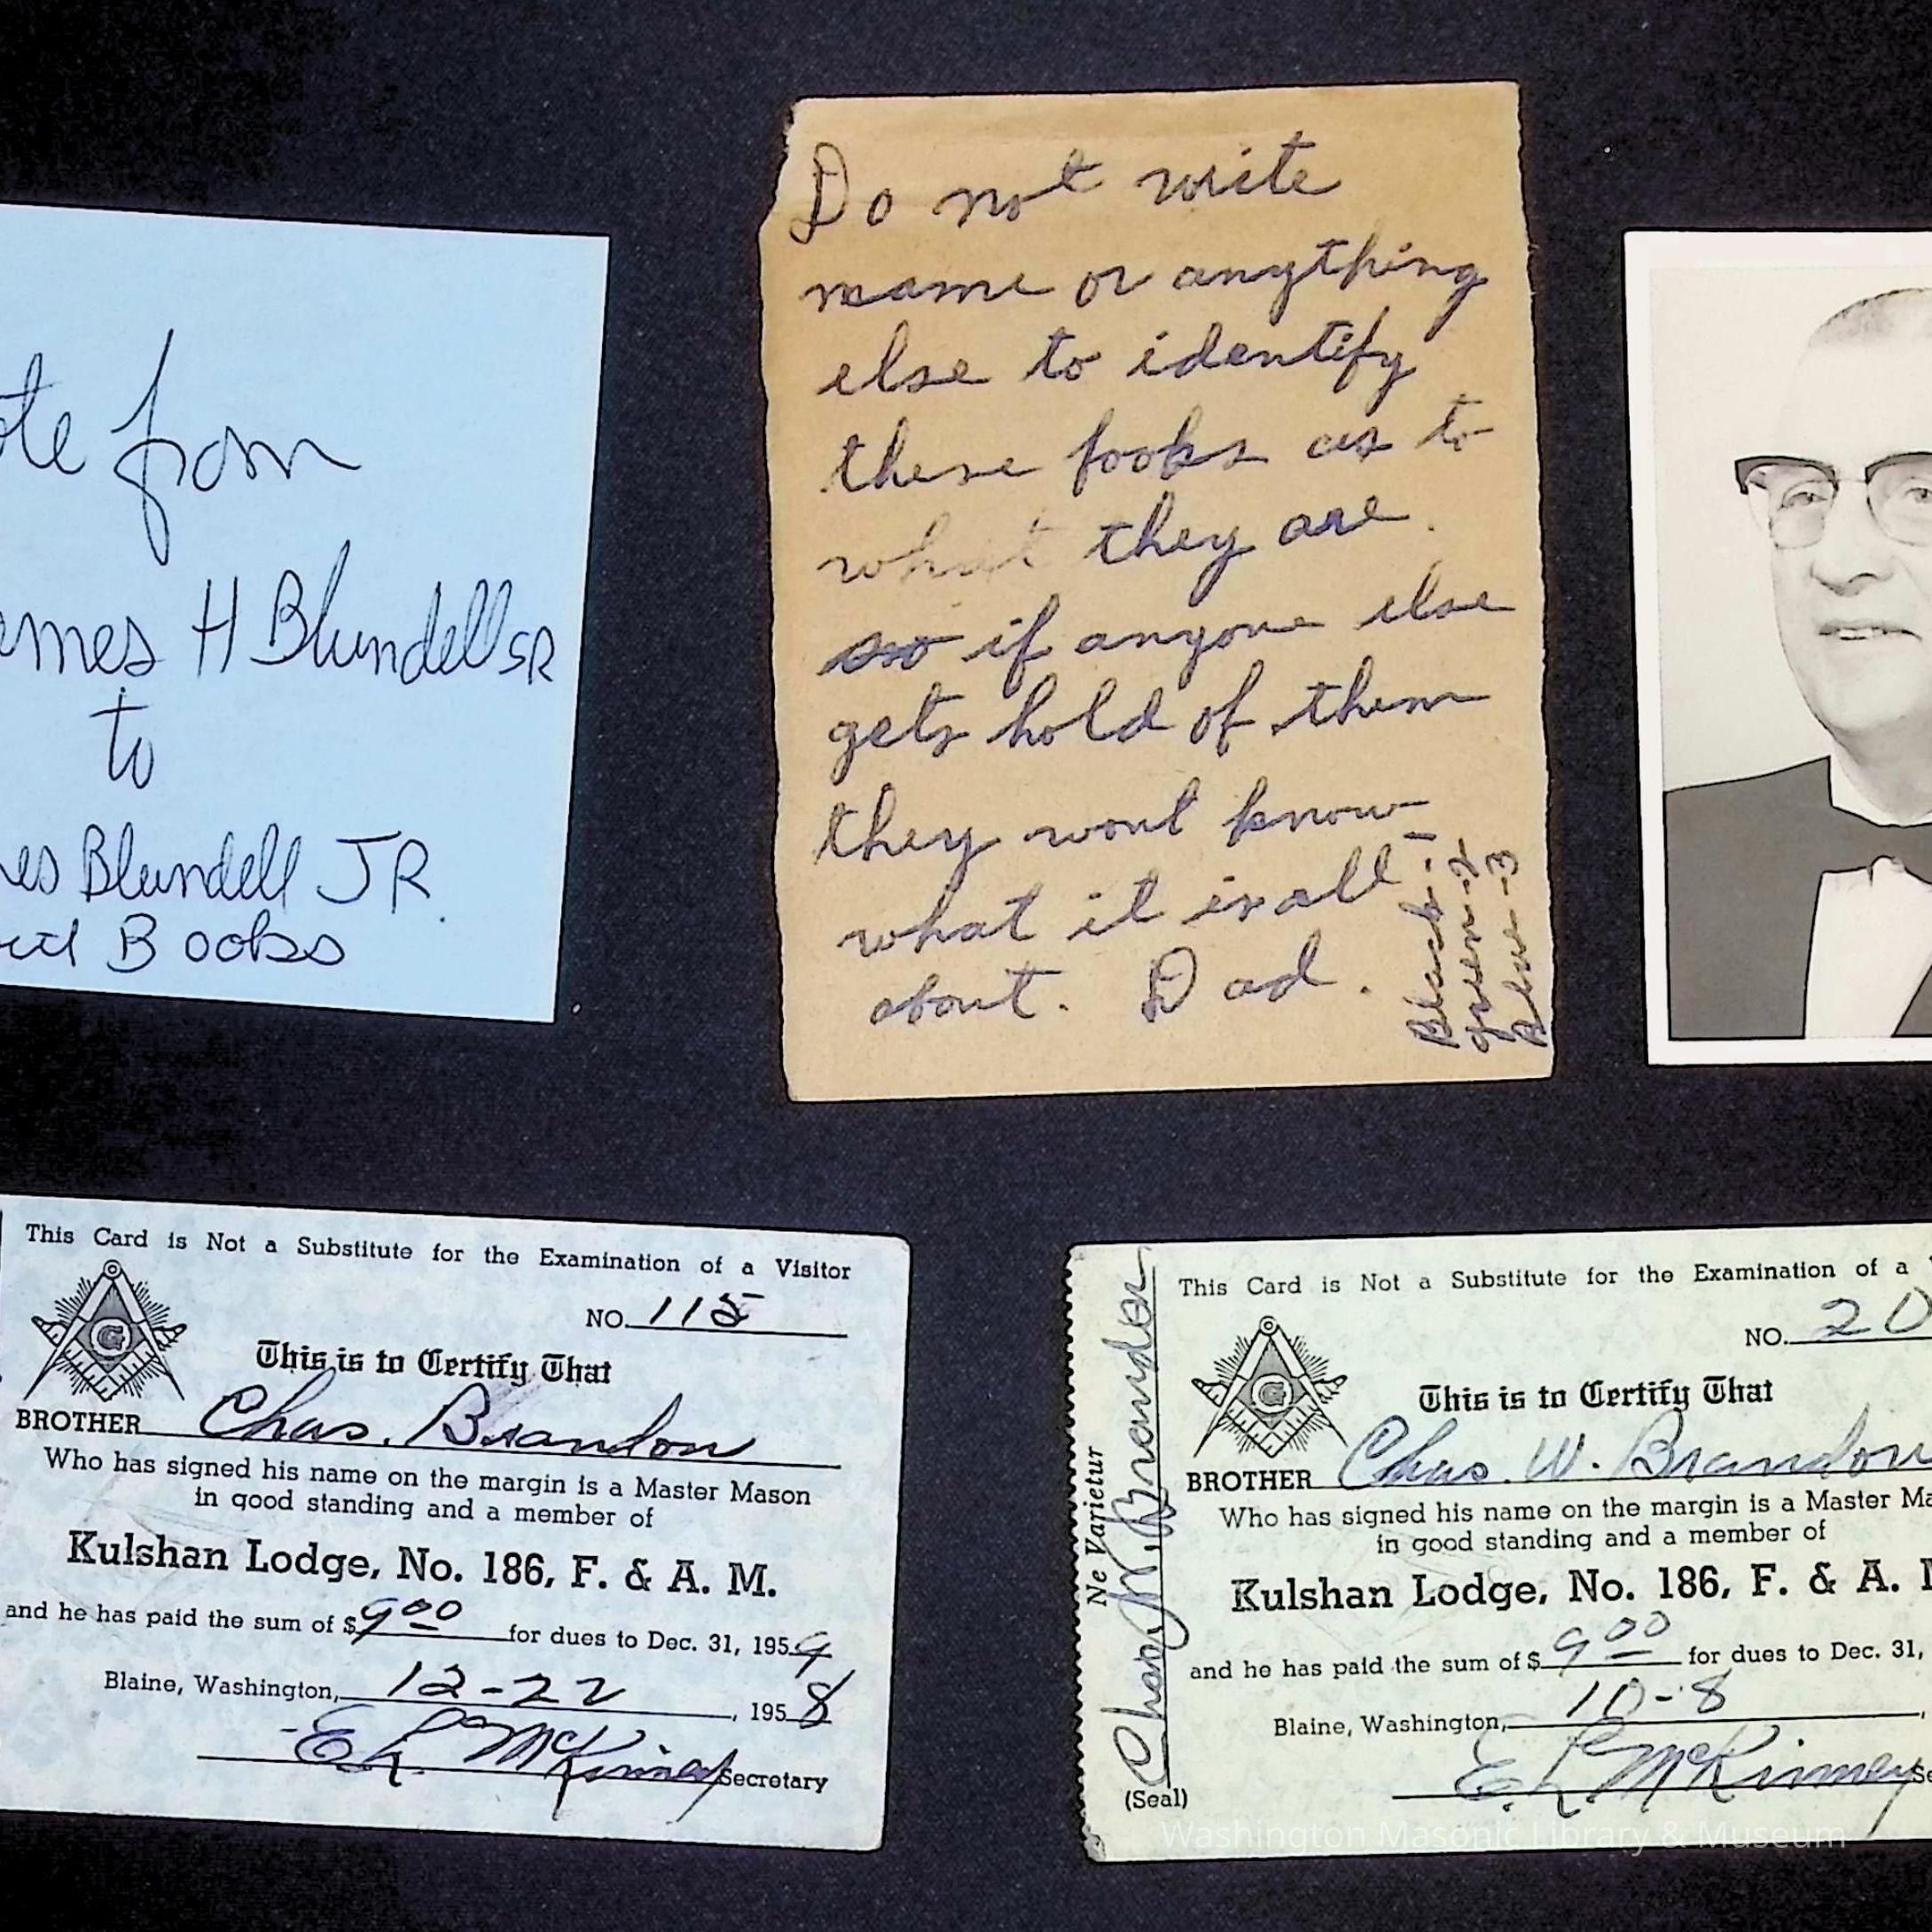 from
H Blundell SR
to
Blundell JR.
Books
Do not write
name or anything
else to identify
these books as to
what they are.
so if anyone else
gets hold of them
they wont know
what it is all
about. Dad.
Black-1
green-2
Blue-3
This Card is Not a Substitute for the Examination of a Visitor
NO. 115
This is to Certify That
BROTHER Chas. Brandon
Who has signed his name on the margin is a Master Mason
in good standing and a member of
Kulshan Lodge, No. 186, F. & A. M.
and he has paid the sum of $ 9 00 for dues to Dec. 31, 1959
Blaine, Washington, 12-22, 1958
E L McKinney Secretary
Ne Varietur
Chas. W. Brandon
(Seal)
This Card is Not a Substitute for the Examination of a
NO. 20
This is to Certify That
BROTHER Chas. W. Brandon
Who has signed his name on the margin is a Master
in good standing and a member of
Kulshan Lodge, No. 186, F. & A.
and he has paid the sum of $ 9 00 for dues to Dec. 31,
Blaine, Washington, 10-8,
E L McKinney
Washington Masonic Library & Museum